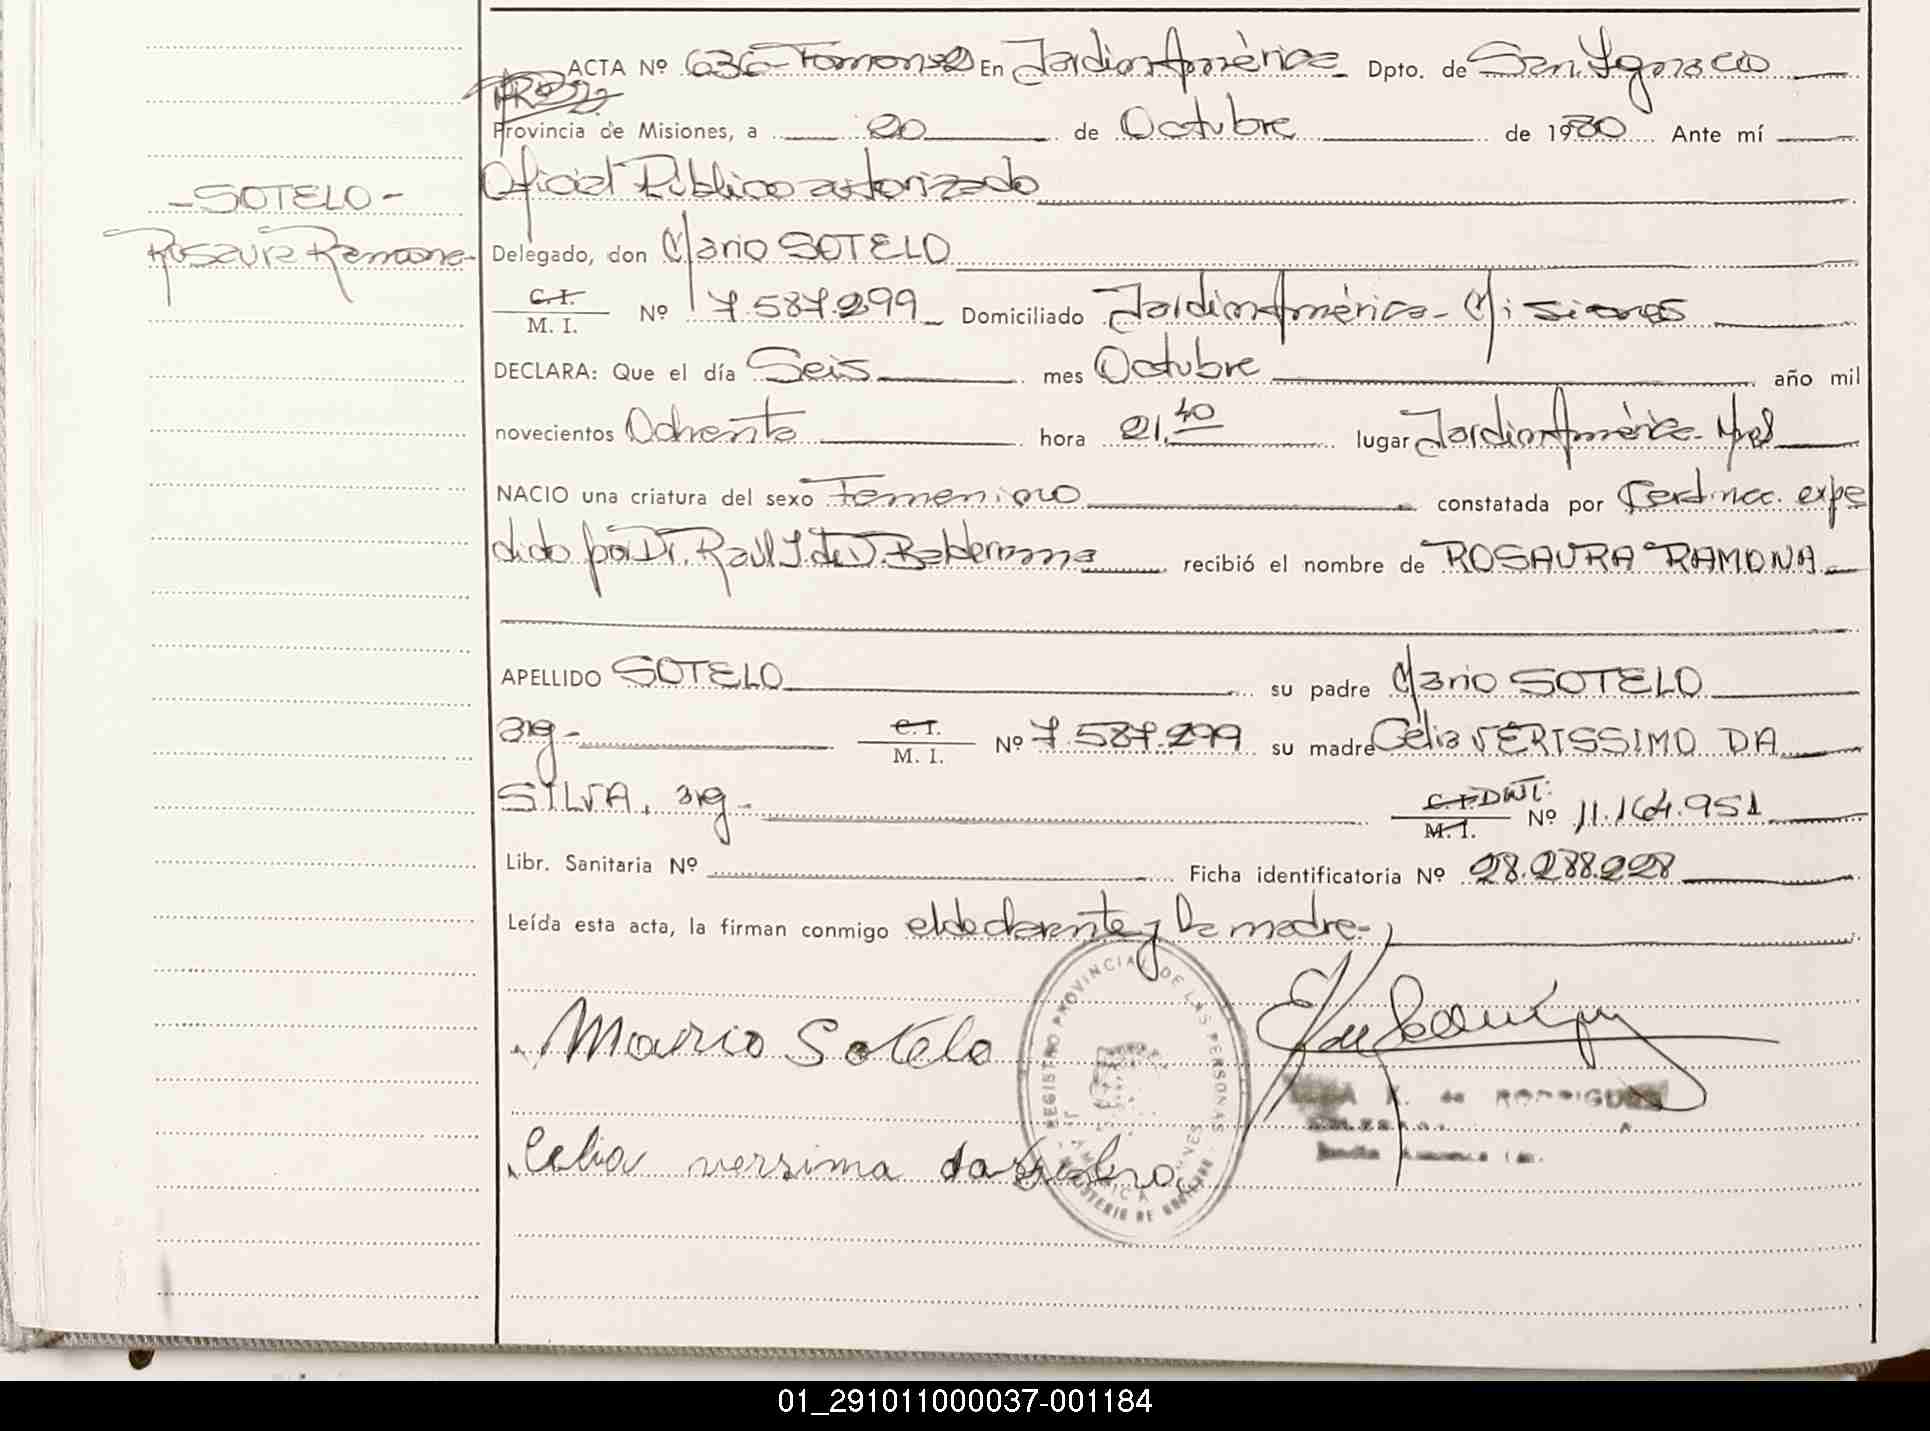 ACTA Nº 636 Tomo Nº 2 En Jardín América Dpto. de San Ignacio
Provincia de Misiones, a 20 de Octubre de 1980 Ante mí
Oficial Público autorizado
- SOTELO -
Rosaura Ramona - Delegado, don Mario SOTELO
C.I.
M. I. Nº 7.587.299 Domiciliado Jardín América - Misiones
DECLARA: Que el día Seis mes Octubre año mil
novecientos Ochenta hora 21,40 lugar Jardín América - Mnes
NACIO una criatura del sexo Femenino constatada por Cert. nac. expe
dido por Dr. Raúl J. de D. Balderrama recibió el nombre de ROSAURA RAMONA
APELLIDO SOTELO su padre Mario SOTELO
arg - C.I. M. I. Nº 7.587.299 su madre Celia VERISSIMO DA
SILVA, arg - C.I. DNI. M.I. Nº 11.164.951
Libr. Sanitaria Nº Ficha identificatoria Nº 28.288.228
Leída esta acta, la firman conmigo el declarante y la madre -
Mario Sotelo
REGISTRO PROVINCIAL DE LAS PERSONAS
K. de RODRIGUES
Celia verssima da
01_291011000037-001184